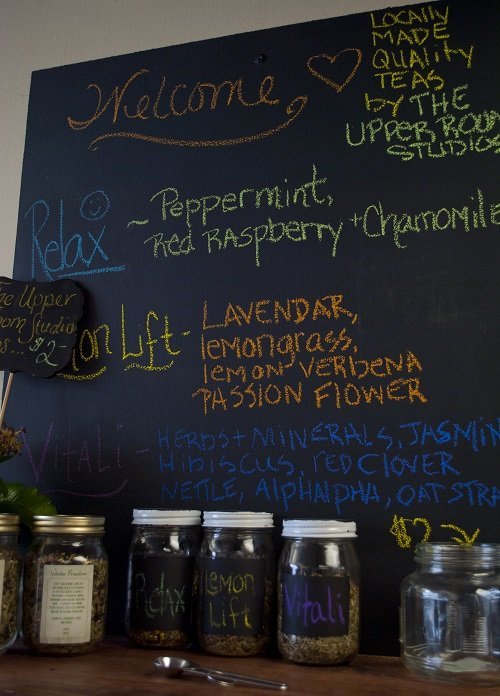 Welcome
LOCALLY
MADE
QUALITY
TEAS
by THE
UPPER ROOM
STUDIOS
Relax ~ Peppermint,
Red RaspbeRRy + Chamomile
The Upper
Room Studio
$2-
Lift - LAVENDAR,
lemongrass,
lemon VERbENA
PASSION FLOWER
VITALi - HERBS + MINERALS, JASMIN
Hibiscus, RED CLOVER
NETTLE, AlPHAlPHA, OAT STR
$2
Relax
Lemon
Lift
Vitali